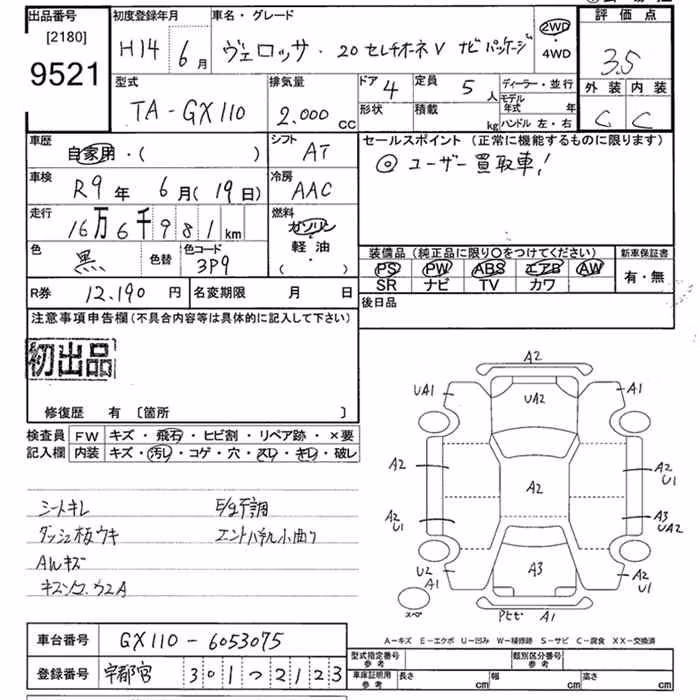 出品番号
[2180]
9521
初度登録年月
H14 6月
車名・グレード
ヴェロッサ・20セレチオーネV ナビパッケージ
2WD
・
4WD
評価点
3.5
外装 内装
C C
型式
TA-GX110
排気量
2.000cc
ドア 4
形状
定員 5人
積載 kg
ディーラー・並行
モデル年式 年
ハンドル 左・右
車歴
自家用・( )
シフト
AT
セールスポイント(正常に機能するものに限ります)
◎ユーザー買取車!
車検
R9年 6月(19日)
冷房
AAC
走行
16万6千981km
燃料
ガソリン
・
軽油
( )
色
黒
色替
色コード
3P9
装備品(純正品に限り○をつけてください)
PS PW ABS エアB AW
SR ナビ TV カワ
新車保証書
有・無
R券 12.190円
名変期限 月 日
後日品
注意事項申告欄(不具合内容等は具体的に記入して下さい)
初出品
修復歴 有 [箇所 ]
検査員記入欄
FW キズ・飛石・ヒビ割・リペア跡・×要
内装 キズ・汚レ・コゲ・穴・スレ・キレ・破レ
シートキレ
ダッシュ板ウキ
Aルキズ
エントパネル小曲り
A2
UA1
UA2
A1
A2
A2
A2
U1
A2
U1
A3
UA2
U2
A1
A3
A2
U1
スペ
A1
A-キズ E-エクボ U-凹み W-補修跡 S-サビ C-腐食 XX-交換済
車台番号 GX110-6053075
登録番号 宇都宮 301つ2123
型式指定番号 参考
類別区分番号 参考
車庫証明用 参考
長さ cm
幅 cm
高さ cm